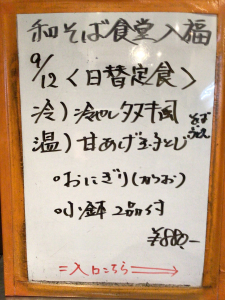 和そば食堂 入福
9/12 <日替定食>
冷) 冷やしタヌキ そば うどん
温) 甘あげ玉子とじ
○おにぎり(かつお)
○小鉢2品付
¥880-
=入口こちら→